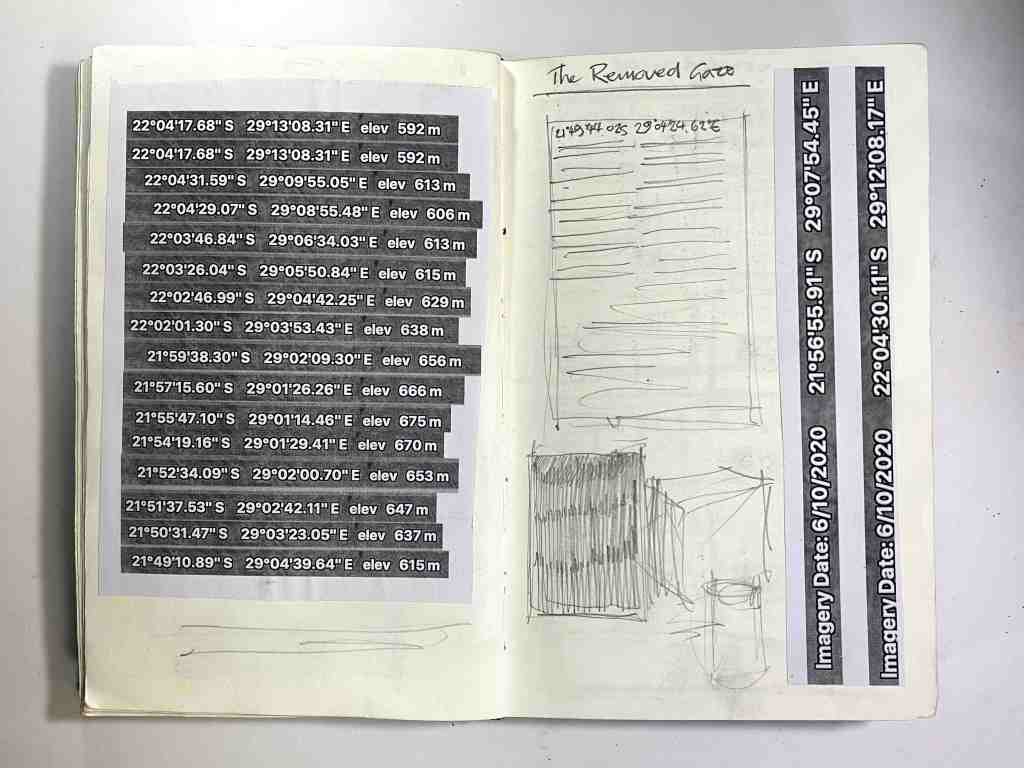 22°04'17.68" S 29°13'08.31" E elev 592 m
22°04'17.68" S 29°13'08.31" E elev 592 m
22°04'31.59" S 29°09'55.05" E elev 613 m
22°04'29.07" S 29°08'55.48" E elev 606 m
22°03'46.84" S 29°06'34.03" E elev 613 m
22°03'26.04" S 29°05'50.84" E elev 615 m
22°02'46.99" S 29°04'42.25" E elev 629 m
22°02'01.30" S 29°03'53.43" E elev 638 m
21°59'38.30" S 29°02'09.30" E elev 656 m
21°57'15.60" S 29°01'26.26" E elev 666 m
21°55'47.10" S 29°01'14.46" E elev 675 m
21°54'19.16" S 29°01'29.41" E elev 670 m
21°52'34.09" S 29°02'00.70" E elev 653 m
21°51'37.53" S 29°02'42.11" E elev 647 m
21°50'31.47" S 29°03'23.05" E elev 637 m
21°49'10.89" S 29°04'39.64" E elev 615 m
The Removed
29°04'24.62"E
Imagery Date: 6/10/2020 21°56'55.91" S 29°07'54.45" E
Imagery Date: 6/10/2020 22°04'30.11" S 29°12'08.17" E